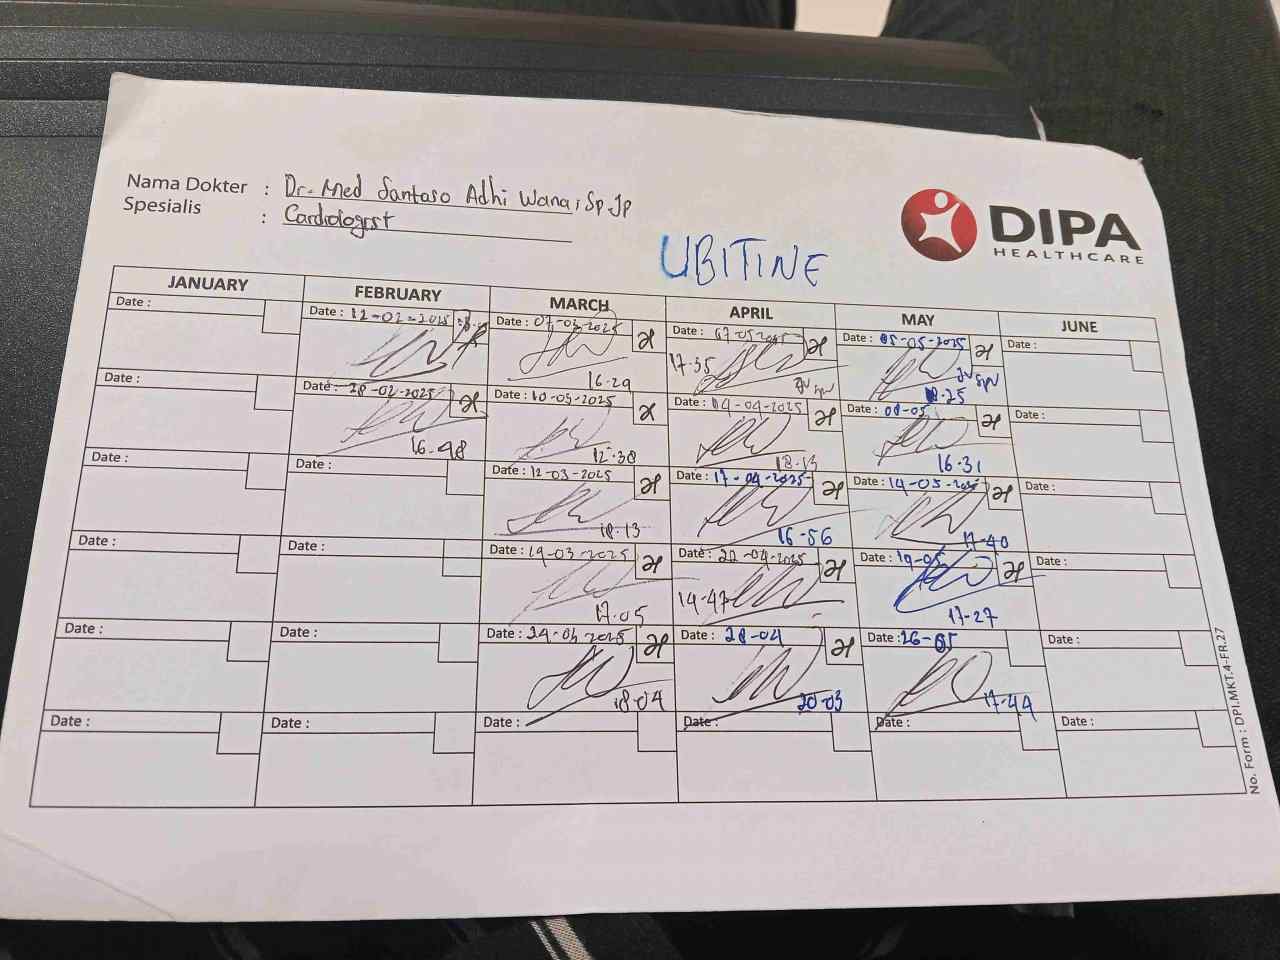 Nama Dokter : Dr. Med Santoso Adhi Wana, Sp.Jp
Spesialis : Cardiologist
DIPA
HEALTHCARE
UBITINE
JANUARY FEBRUARY MARCH APRIL MAY JUNE
Date : Date : 12-02-2025 Date : 07-03-2025 Date : 07-05-2025 Date : 05-05-2025 Date :
16.29 17.35 18.25
Date : Date : 28-02-2025 Date : 10-03-2025 Date : 04-04-2025 Date : 08-05 Date :
16.48 12.38 18.13 16.31
Date : Date : Date : 12-03-2025 Date : 17-04-2025 Date : 14-05-2025 Date :
18.13 16-56 17-40
Date : Date : Date : 19-03-2025 Date : 22-04-2025 Date : 19-05 Date :
17.05 14-47 17-27
Date : Date : Date : 24-03-2025 Date : 28-04 Date : 26-05 Date :
18-04 20-03 17-44
Date : Date : Date : Date : Date : Date :
No. Form : DPI.MKT.4-FR.27